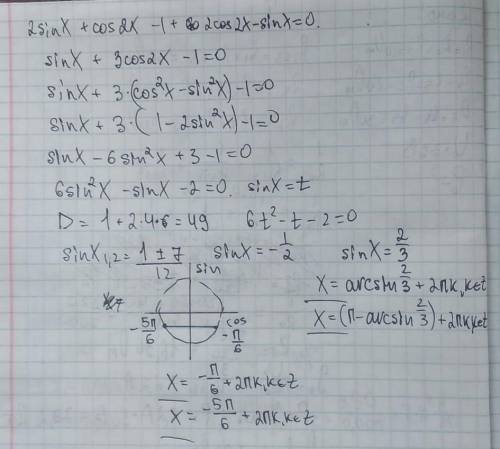 2sinx + cos2x - 1 + 2cos2x - sinx = 0.
sinx + 3cos2x - 1 = 0
sinx + 3·(cos²x - sin²x) - 1 = 0
sinx + 3·(1 - 2sin²x) - 1 = 0
sinx - 6sin²x + 3 - 1 = 0
6sin²x - sinx - 2 = 0. sinx = t
D = 1 + 2·4·6 = 49 6t² - t - 2 = 0
sinx₁,₂ = (1 ± 7)/12 sinx = -1/2 sinx = 2/3
sin
x = arcsin 2/3 + 2πk, k∈Z
x = (π - arcsin 2/3) + 2πk, k∈Z
-5π/6 cos
-π/6
x = -π/6 + 2πk, k∈Z
x = -5π/6 + 2πk, k∈Z